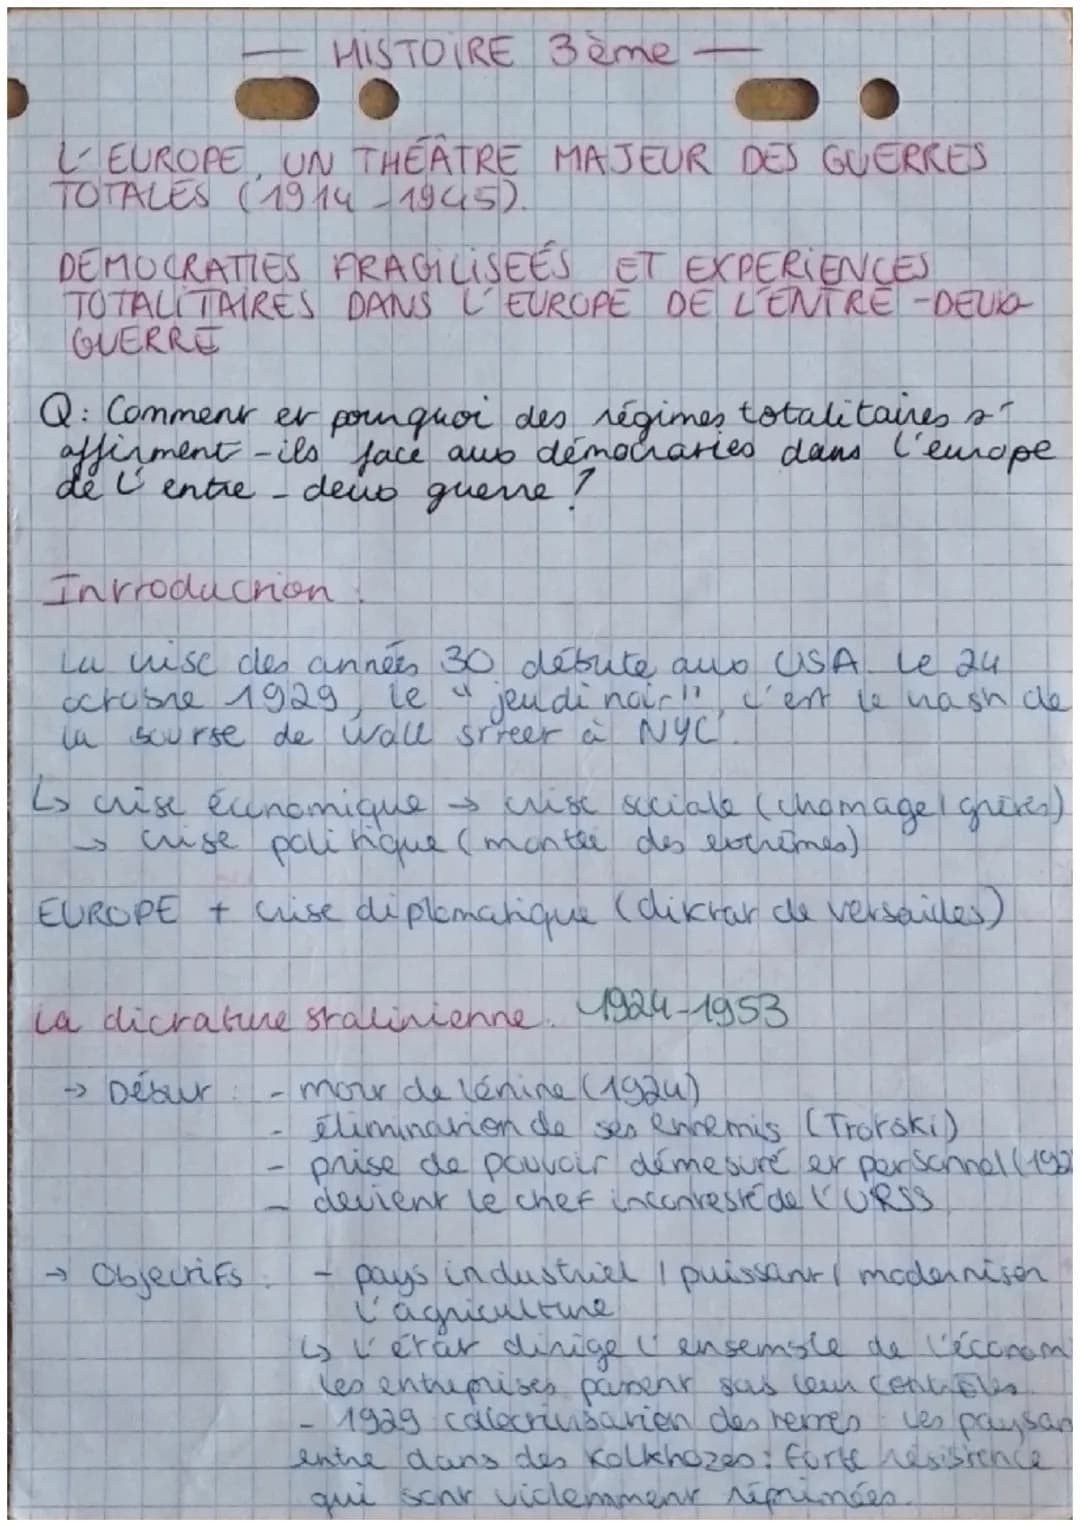 — HISTOIRE 3ème —
L'EUROPE, UN THÉÂTRE MAJEUR DES GUERRES
TOTALES (1914-1945).
DÉMOCRATIES FRAGILISEÉS ET EXPERIENCES
TOTALITAIRES DANS L'EUROPE DE L'ENTRE-DEUX
GUERRE
Q: Comment et pourquoi des régimes totalitaires s'
affirment-ils face aux démocraties dans l'europe
de l'entre-deux guerre ?
Introduction :
La crise des années 30 débute aux USA. Le 24
octobre 1929, le "jeudi noir", c'est le krash de
la bourse de Wall street à NYC.
↳ crise économique → crise sociale (chomage, grèves)
→ crise politique (montée des extrêmes)
EUROPE + crise diplomatique (diktat de versailles)
La dictature stalinienne. 1924-1953
→ Début : - mort de Lénine (1924)
- élimination de ses ennemis (Trotski)
- prise de pouvoir démesuré et personnel (192
- devient le chef incontesté de l'URSS
→ Objectifs : - pays industriel, puissant, moderniser
l'agriculture
↳ l'état dirige l'ensemble de l'économ
les entreprises passent sous leur contrôles.
- 1929 collectivisation des terres : les paysan
entre dans des Kolkhozes : forte résistence
qui sont violemment réprimées.